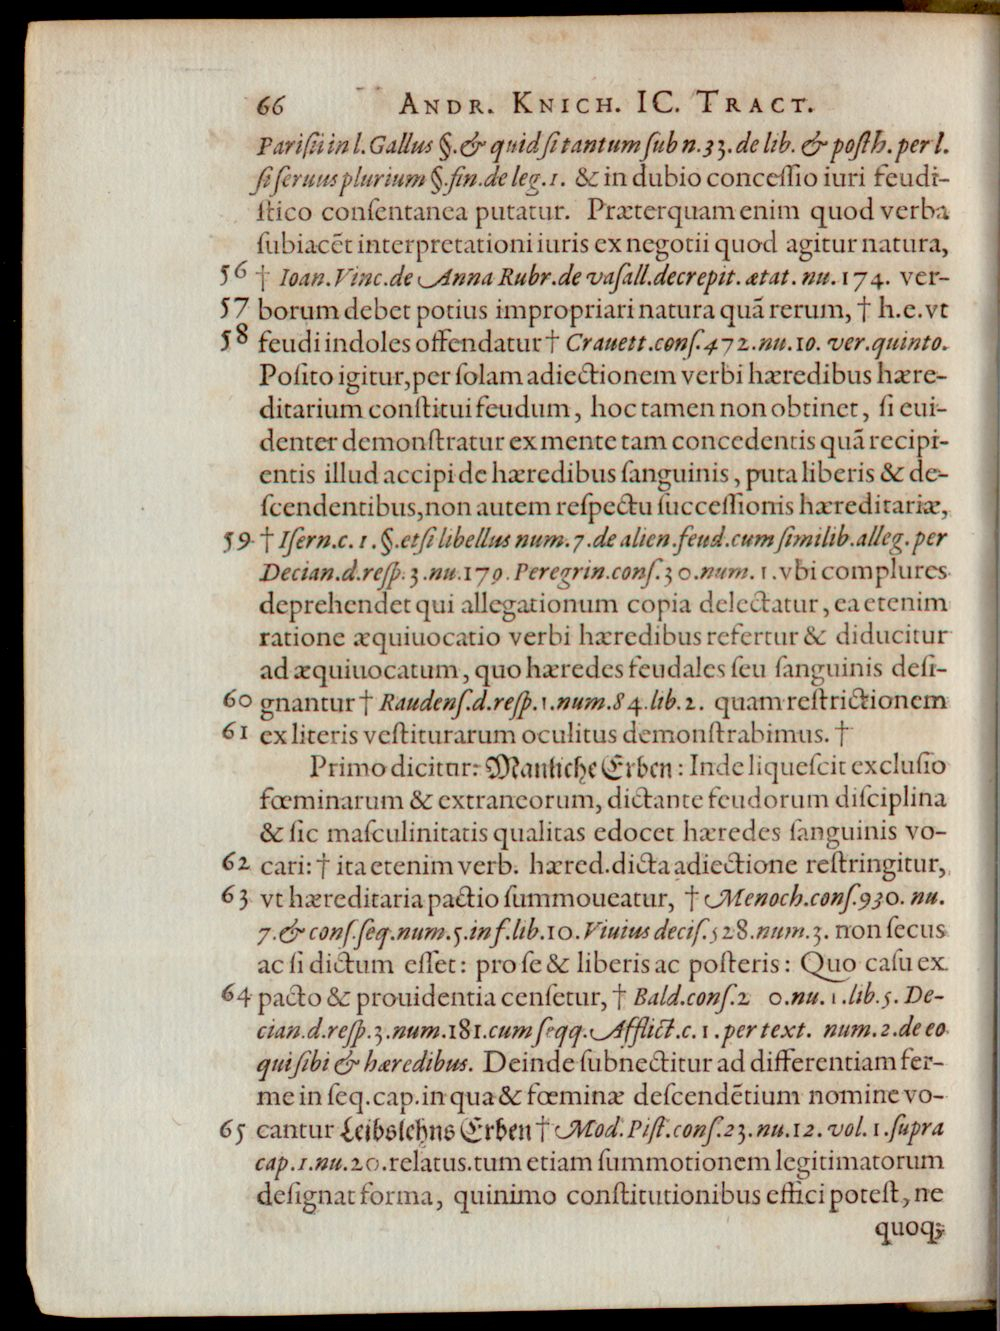 66 ANDR. KNICH. IC. TRACT.
Parisii in l. Gallus §. & quid si tantum sub n. 33. de lib. & posth. per l.
si seruus plurium §. fin. de leg. 1. & in dubio concessio iuri feudi-
stico consentanea putatur. Præterquam enim quod verba
subiacēt interpretationi iuris ex negotii quod agitur natura,
56 † Ioan. Vinc. de Anna Rubr. de vasall. decrepit. ætat. nu. 174. ver-
57 borum debet potius impropriari natura quã rerum, † h. e. vt
58 feudi indoles offendatur † Crauett. cons. 472. nu. 10. ver. quinto.
Posito igitur, per solam adiectionem verbi hæredibus hære-
ditarium constitui feudum, hoc tamen non obtinet, si eui-
denter demonstratur ex mente tam concedentis quã recipi-
entis illud accipi de hæredibus sanguinis, puta liberis & de-
scendentibus, non autem respectu successionis hæreditariæ,
59 † Isern. c. 1. §. etsi libellus num. 7. de alien. feud. cum similib. alleg. per
Decian. d. resp. 3. nu. 179. Peregrin. cons. 30. num. 1. vbi complures
deprehendet qui allegationum copia delectatur, ea etenim
ratione æquiuocatio verbi hæredibus refertur & diducitur
ad æquiuocatum, quo hæredes feudales seu sanguinis desi-
60 gnantur † Raudens. d. resp. 1. num. 84. lib. 2. quam restrictionem
61 ex literis vestiturarum oculitus demonstrabimus. †
Primo dicitur: Manliche Erben: Inde liquescit exclusio
fœminarum & extraneorum, dictante feudorum disciplina
& sic masculinitatis qualitas edocet hæredes sanguinis vo-
62 cari: † ita etenim verb. hæred. dicta adiectione restringitur,
63 vt hæreditaria pactio summoueatur, † Menoch. cons. 930. nu.
7. & cons. seq. num. 5. inf. lib. 10. Viuius decis. 528. num. 3. non secus
ac si dictum esset: pro se & liberis ac posteris: Quo casu ex
64 pacto & prouidentia censetur, † Bald. cons. 2 0. nu. 1. lib. 5. De-
cian. d. resp. 3. num. 181. cum seqq. Afflict. c. 1. per text. num. 2. de eo
qui sibi & hæredibus. Deinde subnectitur ad differentiam fer-
me in seq. cap. in qua & fœminæ descendētium nomine vo-
65 cantur Leibslehns Erben † Mod. Pist. cons. 23. nu. 12. vol. 1. supra
cap. 1. nu. 20. relatus. tum etiam summotionem legitimatorum
designat forma, quinimo constitutionibus effici potest, ne
quoq;